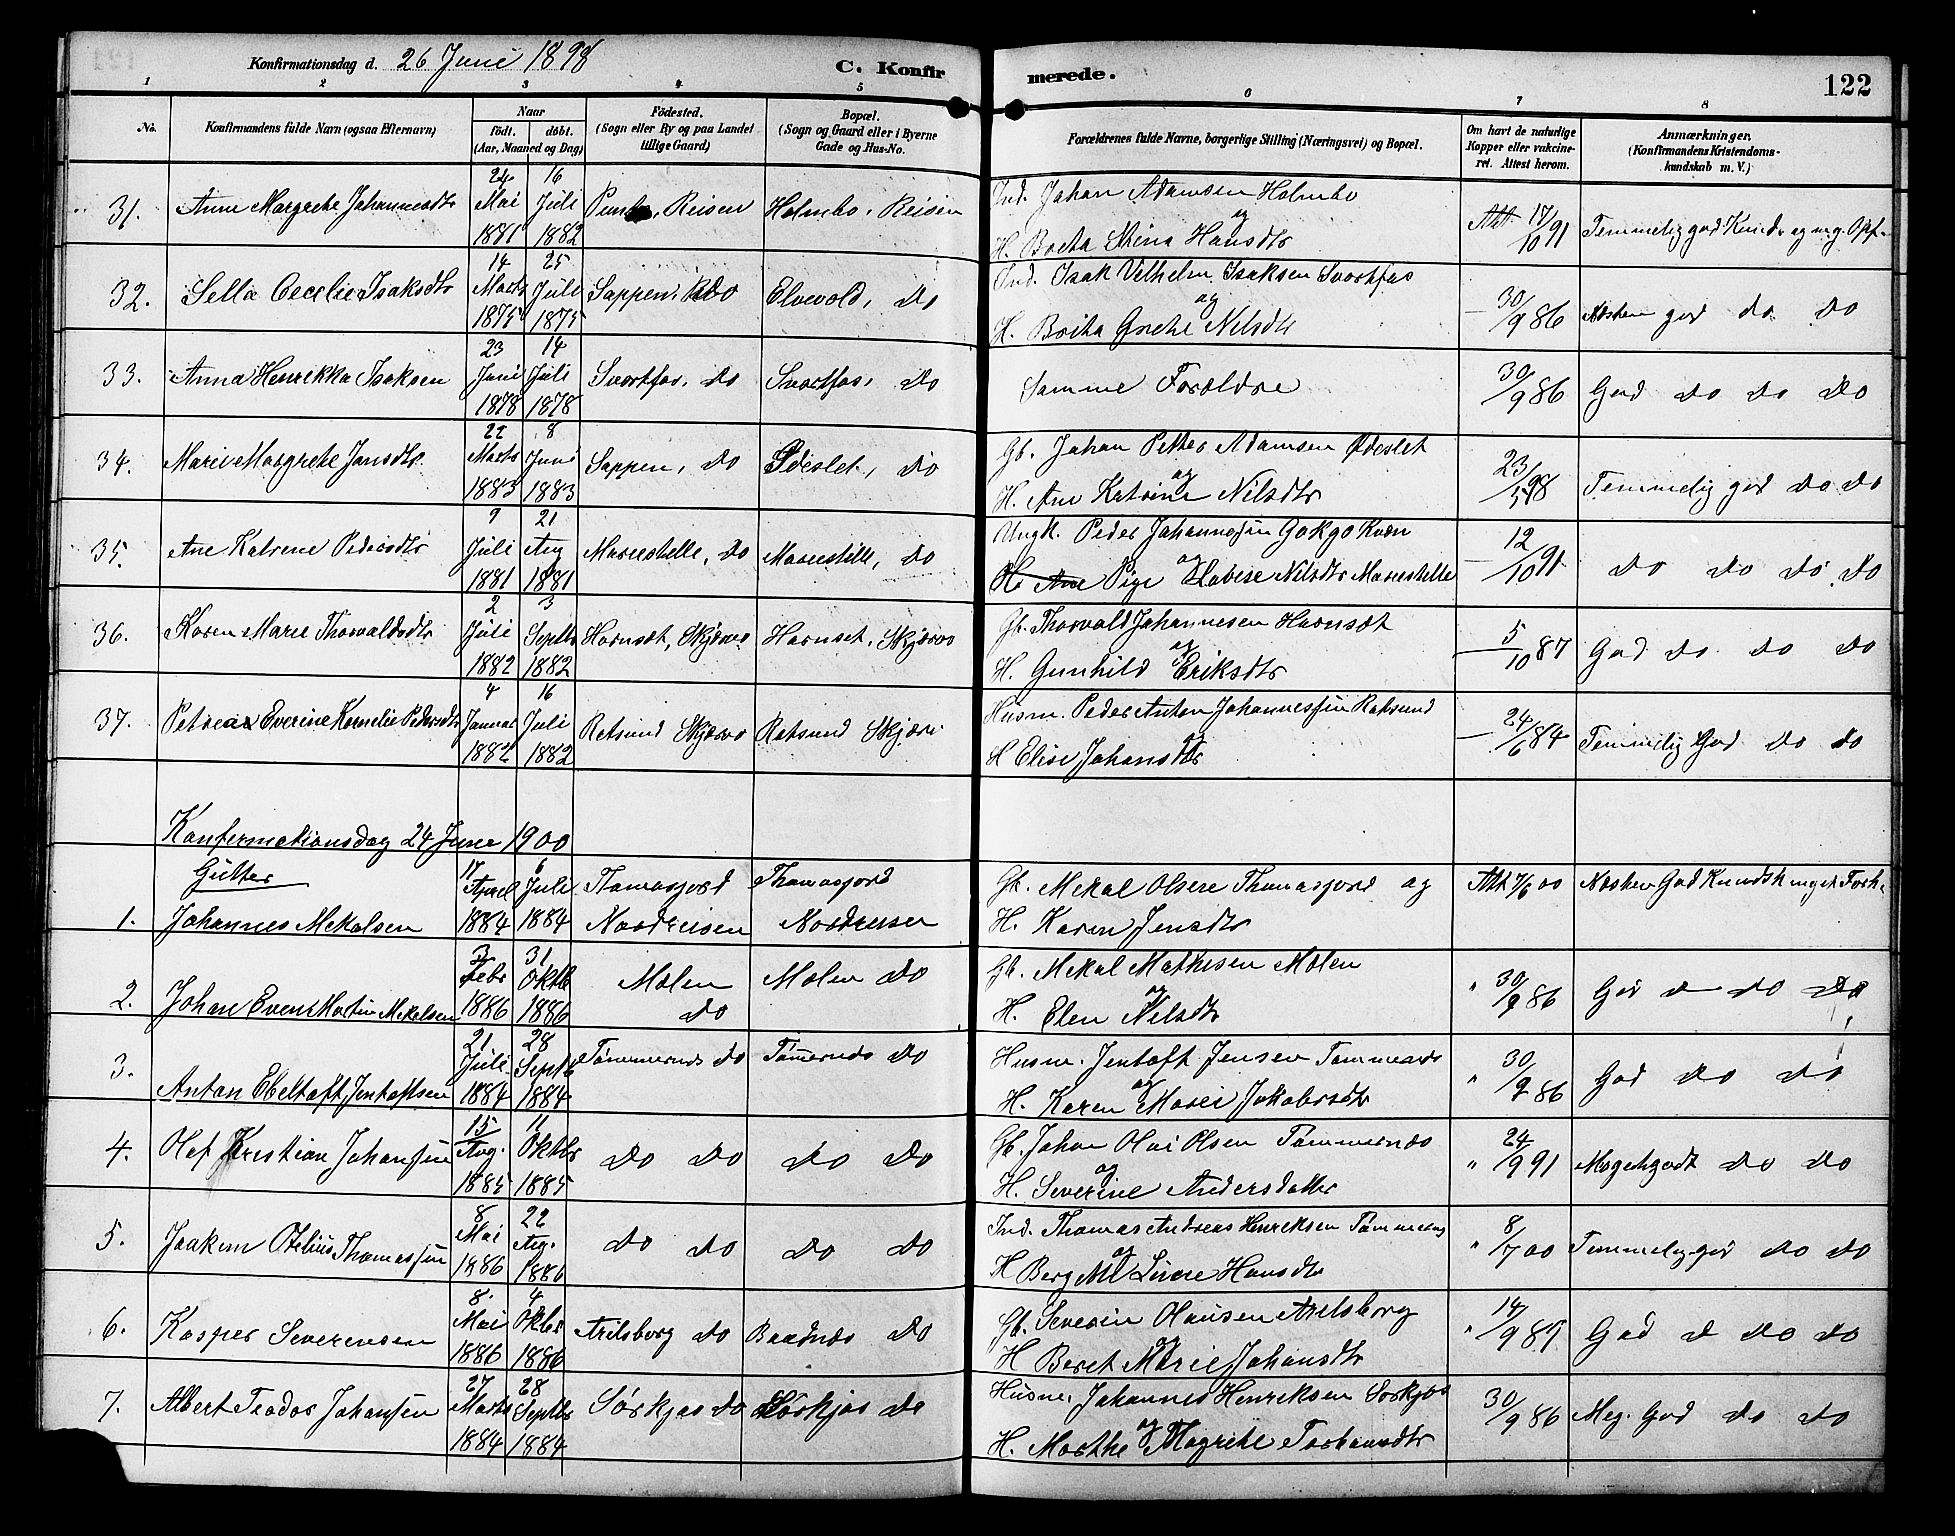 Konfirmationsdag d. 26 Juni 1898
C. Konfirmerede.
122
1 2 3 4 5 6 7 8
No.
Konfirmandens fulde Navn (ogsaa Efternavn)
Naar
födt. döbt.
(Aar, Maaned og Dag)
Födested.
(Sogn eller By og paa Landet
tillige Gaard)
Bopæl.
(Sogn og Gaard eller i Byerne
Gade og Hus-No.
Forældrenes fulde Navne, borgerlige Stilling (Næringsvei) og Bopæl.
Om havt de naturlige
Kopper eller vakcine-
ret. Attest herom.
Anmærkninger.
(Konfirmandens Kristendoms-
kundskab m. V.)
31. Anne Margrethe Johannesdtr 24 Mai 1881 16 Juli 1882 Reisen Holmbo, Reisen
Ind. Johan Adamsen Holmbo
og
H. Brita Stina Hansdtr
Att 17/10 91 Temmelig god Kundsk og mg. Opf.
32. Sella Cecelie Isaksdtr 14 Marts 1875 25 Juli 1875 Sappen, Do Elvevold, Do
Ind. Isak Vilhelm Isaksen Svartfos
og
H. Brita Grethe Nilsdtr
– 30/9 86 Næsten god do do
33. Anna Henrikka Isaksen 23 Juni 1878 14 Juli 1878 Svartfos, Do Svartfos, Do
Samme Forældre
30/9 86 God do do do
34. Marie Margrethe Jansdtr 22 Marts 1883 8 Juni 1883 Sappen, Do Ødeslet, Do
Gb. Johan Petter Adamsen Ødeslet
og
H. Ane Katrine Nilsdtr
23/5 98 Temmelig god do do
35. Ane Katrene Pedersdtr 9 Juli 1881 21 Aug 1881 Mareistelle, Do Mareistille, Do
Ungk. Peder Johannessen Gokgo Kvæn
og
Pige Nilsdtr Mareistelle
– 12/10 91 do do do do
36. Karen Marie Thorvaldsdtr 2 Juli 1882 3 Septbr 1882 Havnset, Skjærvø Havnset, Skjærvø
Gb. Thorvald Johannesen Havnset
og
H. Gunhild Eriksdtr
– 5/10 87 God do do do
37. Petrea Everine Kornelie Pedersdtr 4 Januar 1882 16 Juli 1882 Rotsund Skjærvø Rotsund Skjærv
Husm. Peder Anton Johannessen Rotsund
og
H Elise Johansdtr
– 24/6 84 Temmelig God do do
Konfermationsdag 24 June 1900
Gutter
1. Johannes Mekalsen 17 Aprel 1884 6 Juli 1884 Thomasjord Nordreisen Thomasjord Nordreisen
Gb. Mekal Olsen Thomasjord og
H. Karen Jensdtr
Att 7/6 00 Næsten God Kundsk meget Forh.
2. Johan Even Martin Mekelsen Febr 1886 31 Oktbr 1886 Molen do Molen do
Gb. Mekal Mathisen Molen
og
H. Elen Nilsdtr
" 30/9 86 God do do
3. Anton Ebeltoft Jentoftsen 21 Juli 1884 28 Septbr 1884 Tømmernes do Tømmernes do
Husm. Jentoft Jensen Tømmernes
og
H. Karen Marei Jakobsdtr
" 30/9 86 God do do
4. Olaf Kristian Johansen 15 Aug. 1885 11 Oktbr 1885 do do do do
Gb. Johan Olai Olsen Tømmernes
og
H. Severine Andersdatter
" 24/9 91 Megetgodt do do
5. Joakim Otelius Thomassen 8 Mai 1886 22 Aug. 1886 do do do do
Ind. Thomas Andreas Henriksen Tømmernes
og
H Hansdtr
" 8/7 00 Temmelig god do do
6. Kasper Severensen 8. Mai 1886 4 Oktbr 1886 Axelsborg do Baadnes do
Gb. Severin Hansen Axelsborg
og
H Beret Marie Johansdtr
" 14/9 89 God do do do
7. Albert Teodor Johansen 27 Marts 1884 28 Septbr 1884 Sørkjos do Sørkjos do
Husm. Johannes Henriksen Sørkjos
og
H. Marthe Magrete
30/9 86 Meg. God do do